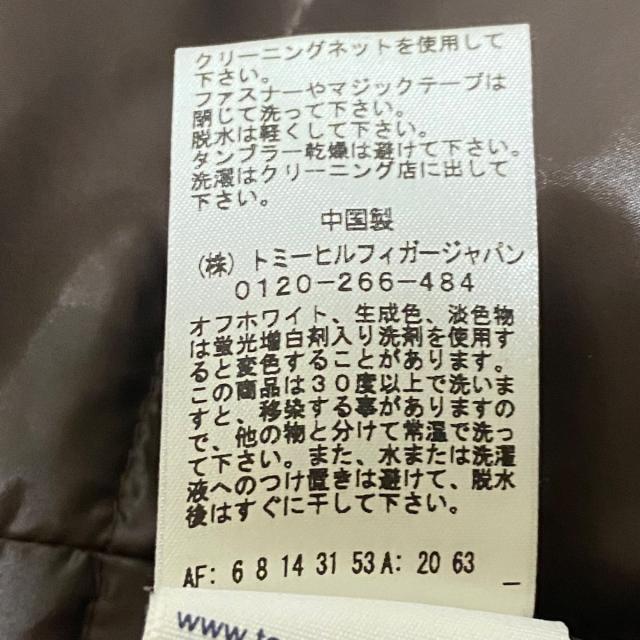 クリーニングネットを使用して
下さい。
ファスナーやマジックテープは
閉じて洗って下さい。
脱水は軽くして下さい。
タンブラー乾燥は避けて下さい。
洗濯はクリーニング店に出して
下さい。
中国製
(株) トミーヒルフィガージャパン
0120-266-484
オフホワイト、生成色、淡色物
は蛍光増白剤入り洗剤を使用す
ると変色することがあります。
この商品は30度以上で洗いま
すと、移染する事がありますの
で、他の物と分けて常温で洗っ
て下さい。また、水または洗濯
液へのつけ置きは避けて、脱水
後はすぐに干して下さい。
AF: 6 8 14 31 53 A: 20 63